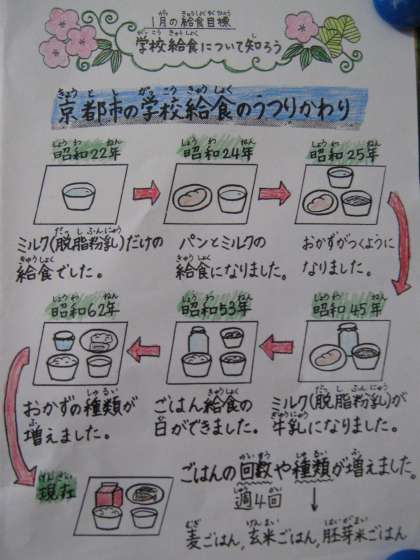 1月の給食目標
学校給食について知ろう
京都市の学校給食のうつりかわり
昭和22年
ミルク(脱脂粉乳)だけの
給食でした。
昭和24年
パンとミルクの
給食になりました。
昭和25年
おかずがつくように
なりました。
昭和45年
ミルク(脱脂粉乳)が
牛乳になりました。
昭和53年
ごはん給食の
日ができました。
昭和62年
おかずの種類が
増えました。
現在
ごはんの回数や種類が増えました。
週4回
麦ごはん,玄米ごはん,胚芽米ごはん